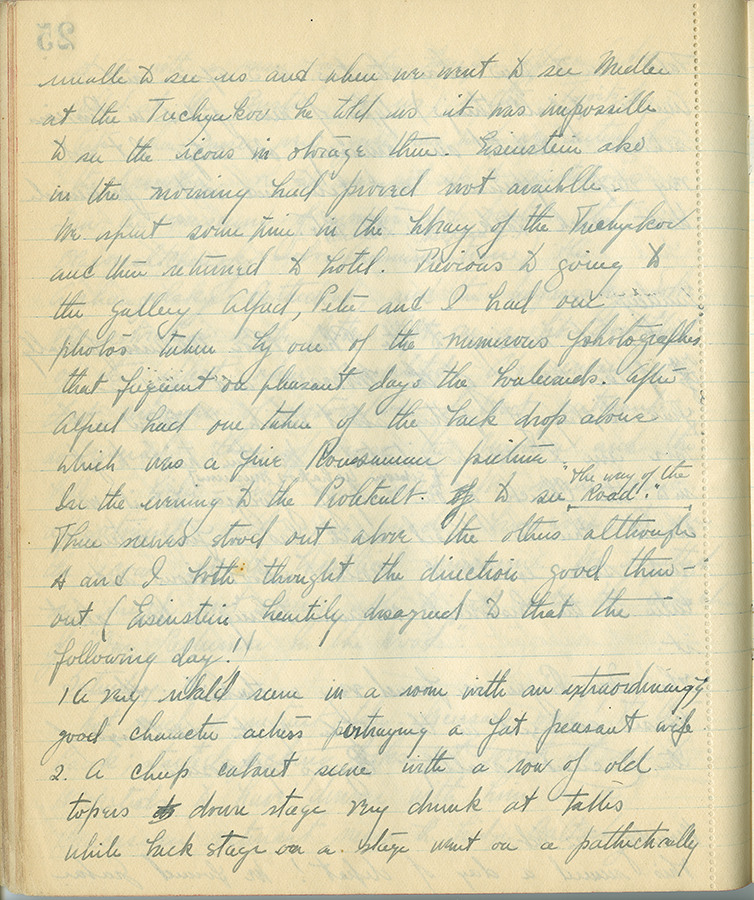 unable to see us and when we went to see Mudler
at the Trechyakov he told us it was impossible
to see the icons in storage there. Eisenstein also
in the morning had proved not availble.
We spent some time in the library of the Trechyakov
and then returned to hotel. Previous to going to
the gallery Alfred, Peter and I had our
photos taken by one of the numerous photographers
that frequent on pleasant days the boulevards. After
Alfred had one taken of the back drop alone
which was a fine Rousseauan picture.
In the evening to the Proletcult. to see "The way of the
Road."
Three scenes stood out above the others although
A and I both thought the direction good thru-
out (Eisenstein heartily disagreed to that the
following day!)
1 A very ribald scene in a room with an extraordinaryly
good character actress portraying a fat peasant wife.
2. A cheap cabaret scene with a row of old
topers down stage very drunk at tables
while back stage on a stage went on a pathetically